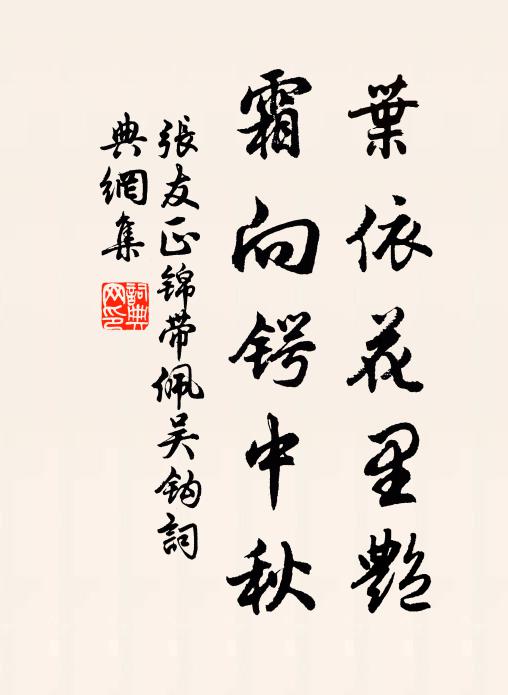 葉依花里艷
霜向鍔中秋
張友正錦帶佩吴鈎詞
典網集
詞典
网印